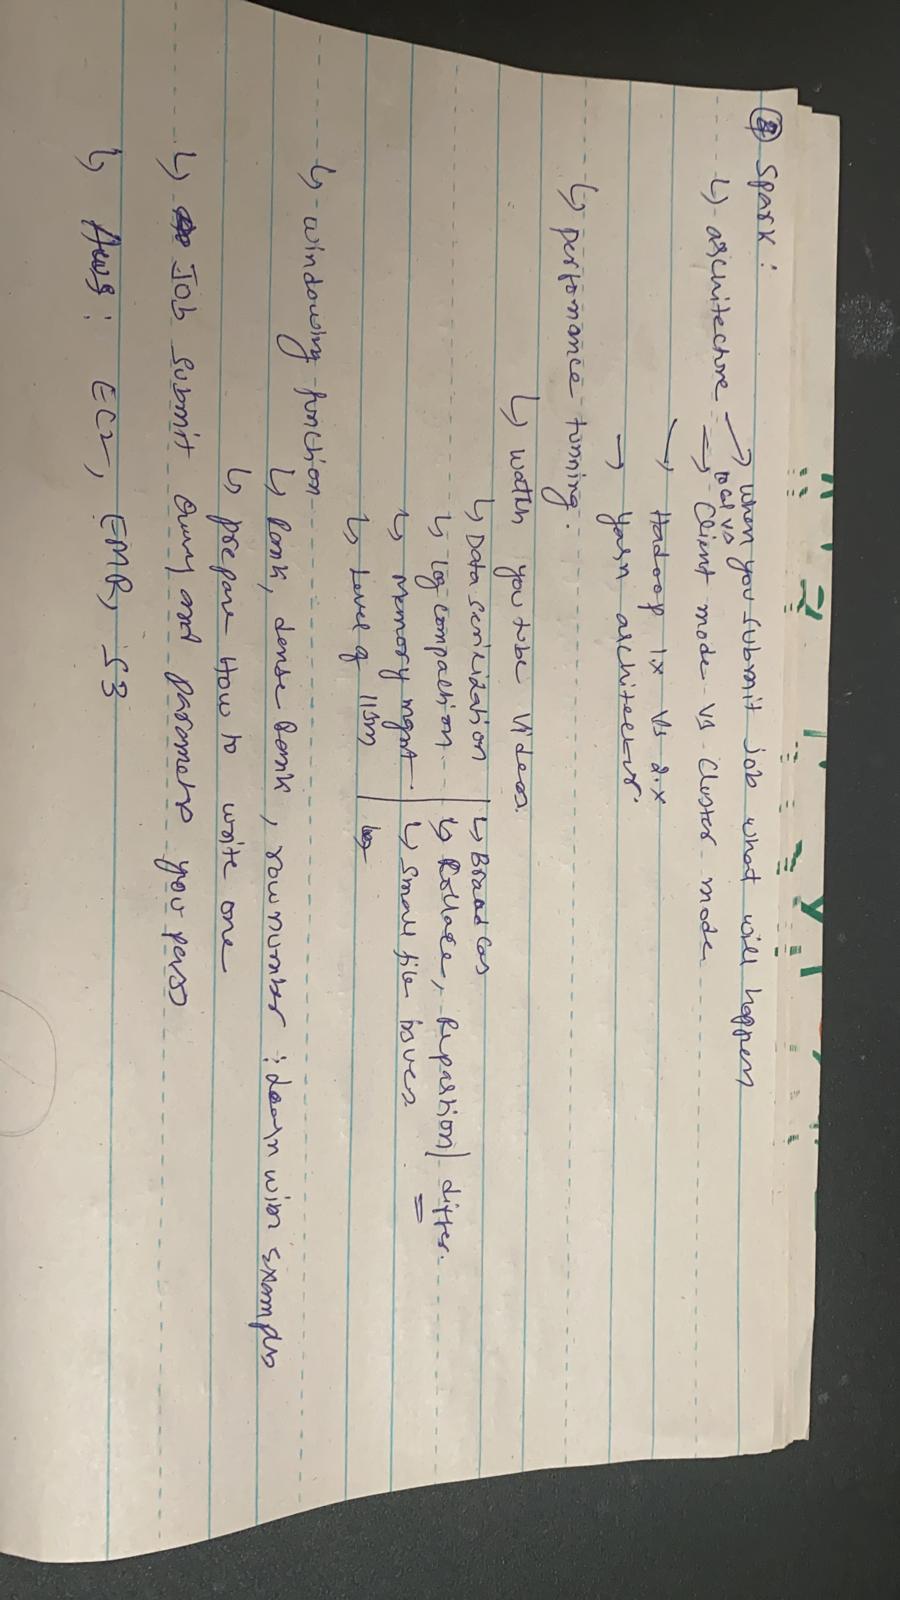 Spark :
↳ architecture → when you submit job what will happen
local vs
⇒ Client mode vs cluster mode
→ Hadoop 1.x vs 2.x
→ Yarn architectur.
↳ performance tunning.
↳ watch you tube videos.
↳ Data serilidation | ↳ Broad cas
↳ log compaction | ↳ Repartion | differ.
↳ memory mgmt. | ↳ small file issues.
↳ Level of llsm |
↳ windowing function
↳ Rank, dense Rank, row number : learn with examples
↳ prepare How to write one
↳ Job submit Query and parameters you pass
↳ Aws : EC2, EMR, S3